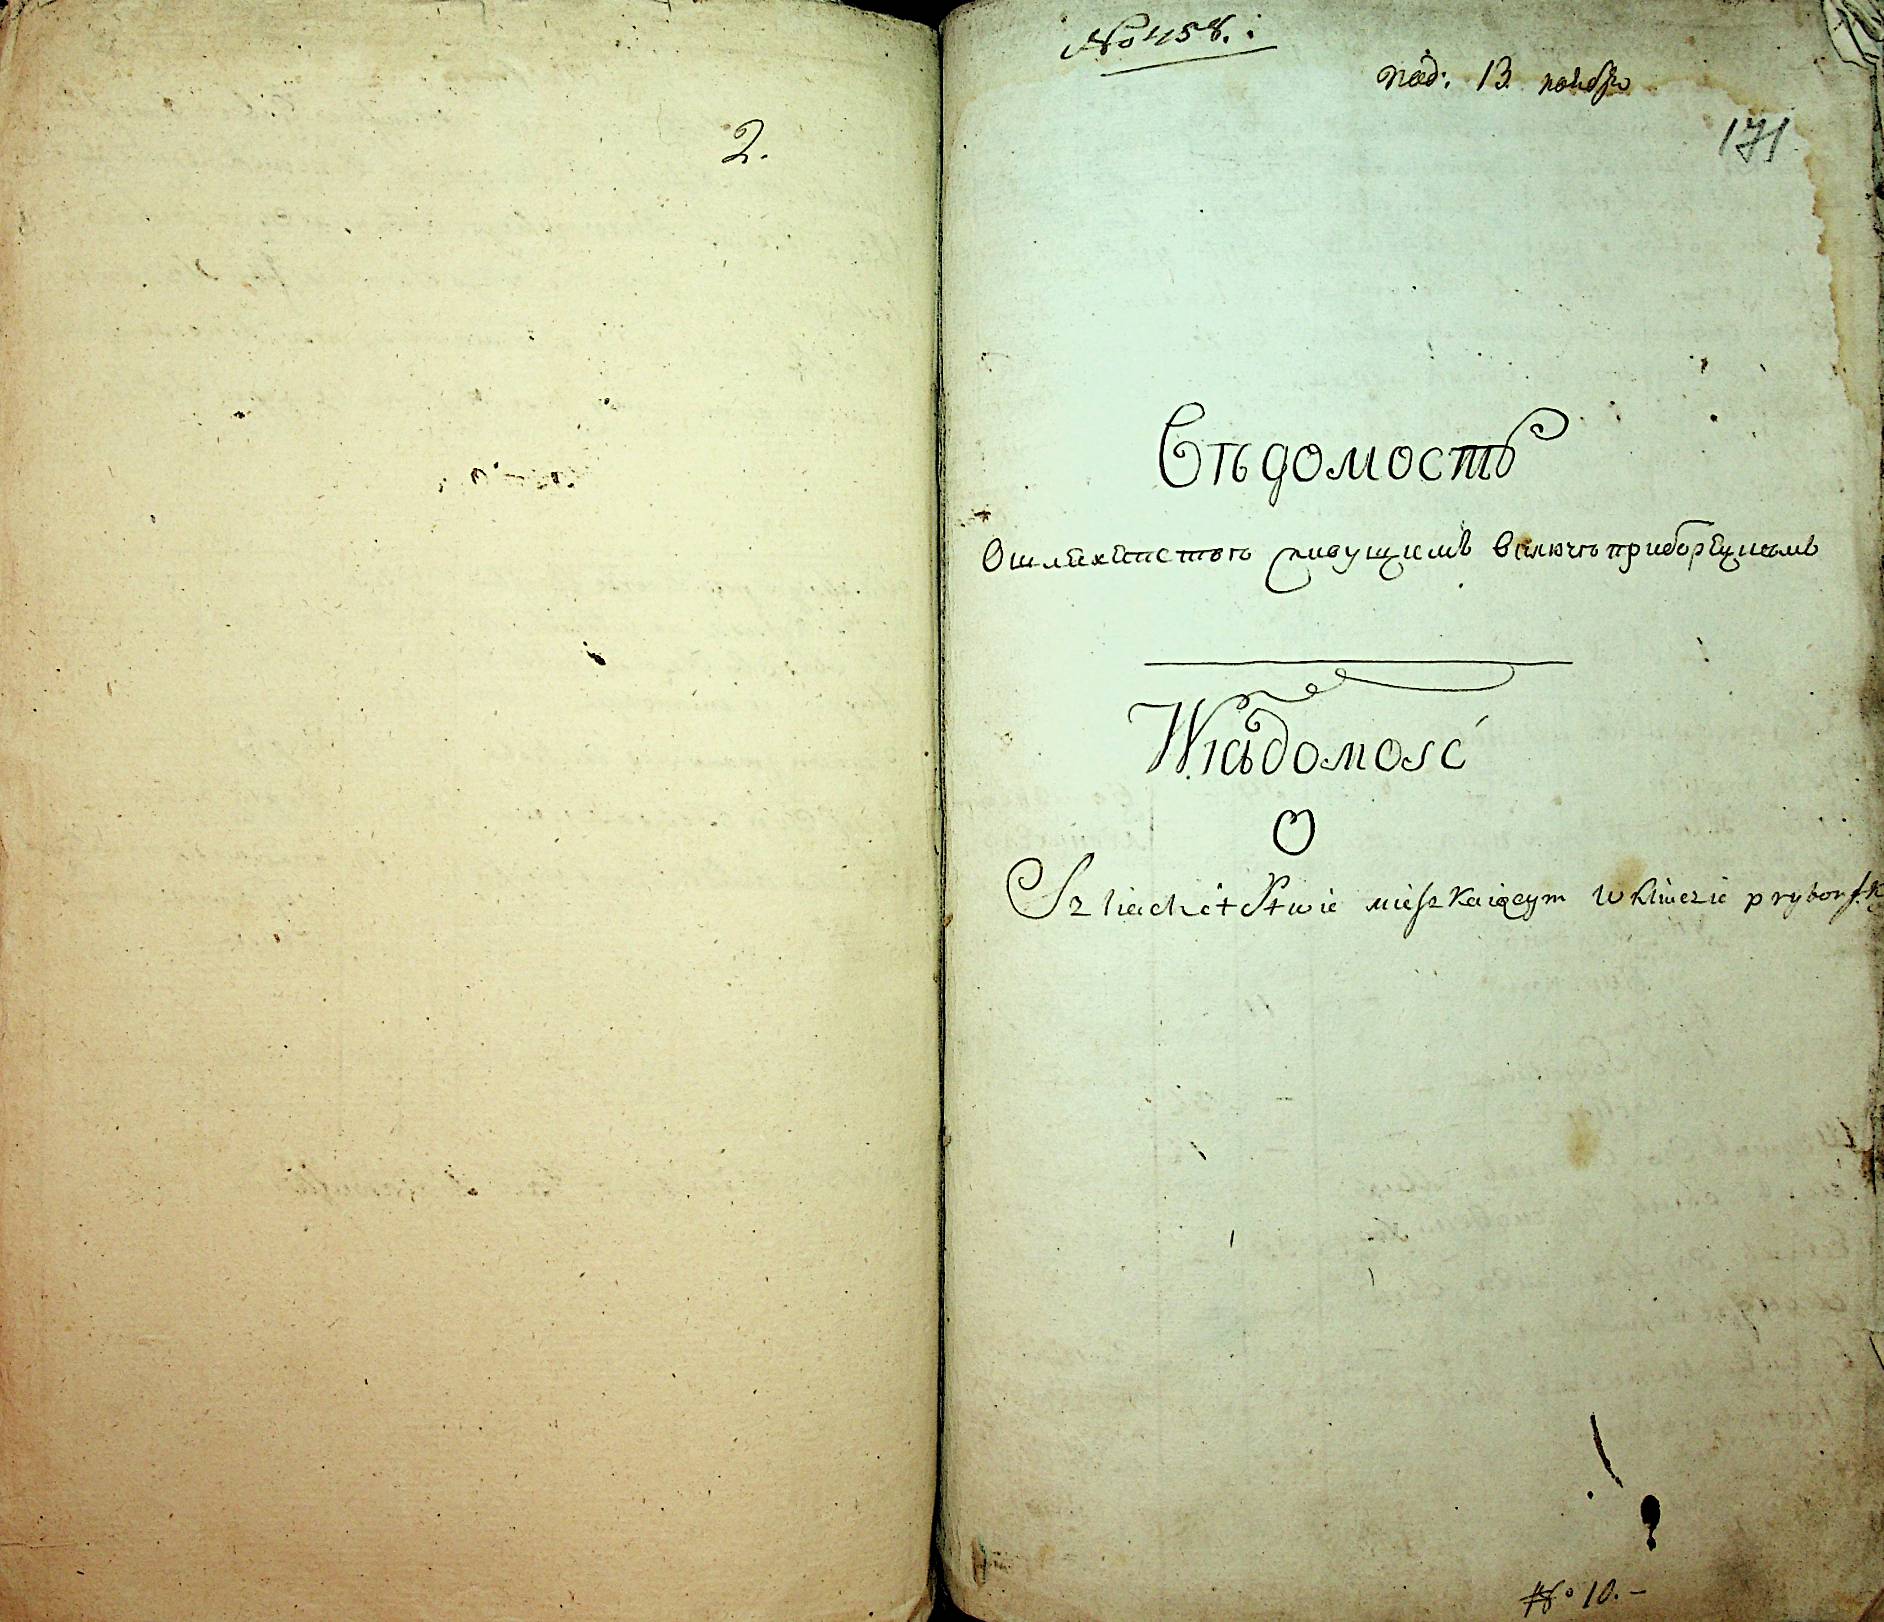 2.
No 458.
под: 13 ноября
171
Вѣдомость
О шляхетстве живущимъ включѣ приборскомъ
Wiadomosć
O
Szliachetstwie mieszkaiącym w kluczie pryborsk
No 10.-